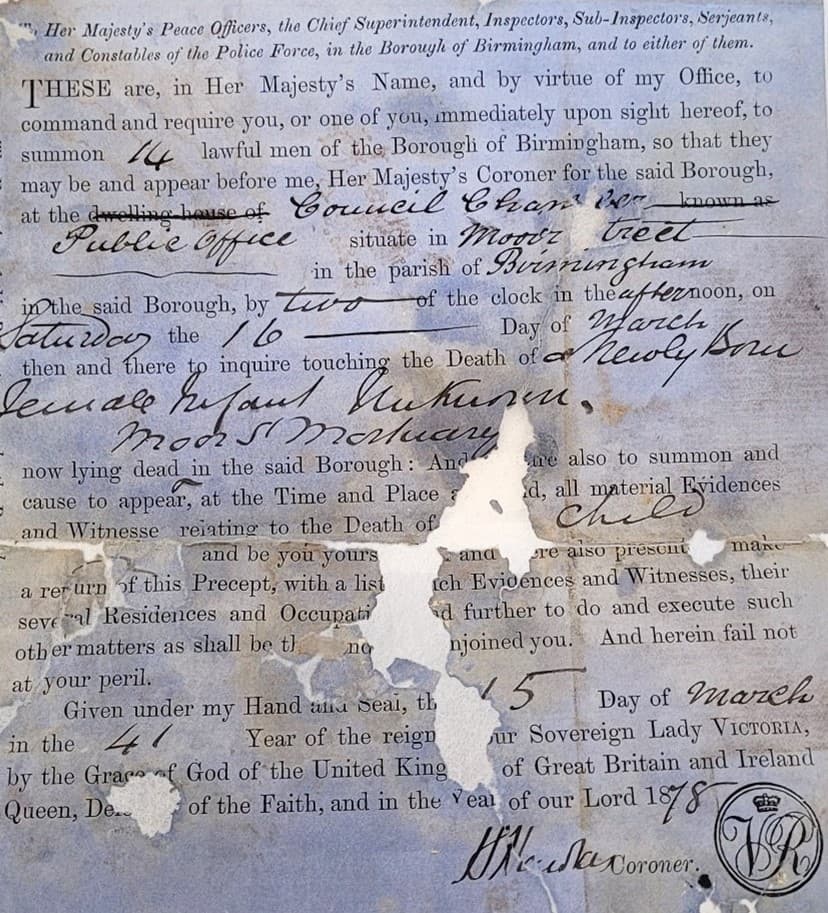 Her Majesty's Peace Officers, the Chief Superintendent, Inspectors, Sub-Inspectors, Serjeants,
and Constables of the Police Force, in the Borough of Birmingham, and to either of them.
THESE are, in Her Majesty's Name, and by virtue of my Office, to
command and require you, or one of you, immediately upon sight hereof, to
summon 14 lawful men of the Borough of Birmingham, so that they
may be and appear before me, Her Majesty's Coroner for the said Borough,
at the dwelling-house of Council Chamber known as
Public Office situate in Moor Street
in the parish of Birmingham
in the said Borough, by two of the clock in the afternoon, on
Saturday the 16 Day of March
then and there to inquire touching the Death of a Newly Born
Female Infant Unknown.
Moor St Mortuary
now lying dead in the said Borough: And are also to summon and
cause to appear, at the Time and Place d, all material Evidences
and Witnesse relating to the Death of Child
and be you yours and ere also present make
a return of this Precept, with a list ch Evidences and Witnesses, their
several Residences and Occupati d further to do and execute such
other matters as shall be th no njoined you. And herein fail not
at your peril.
Given under my Hand and Seal, th 15 Day of March
in the 41 Year of the reign ur Sovereign Lady VICTORIA,
by the Grace of God of the United King of Great Britain and Ireland
Queen, De of the Faith, and in the Year of our Lord 1878
Coroner.
VR